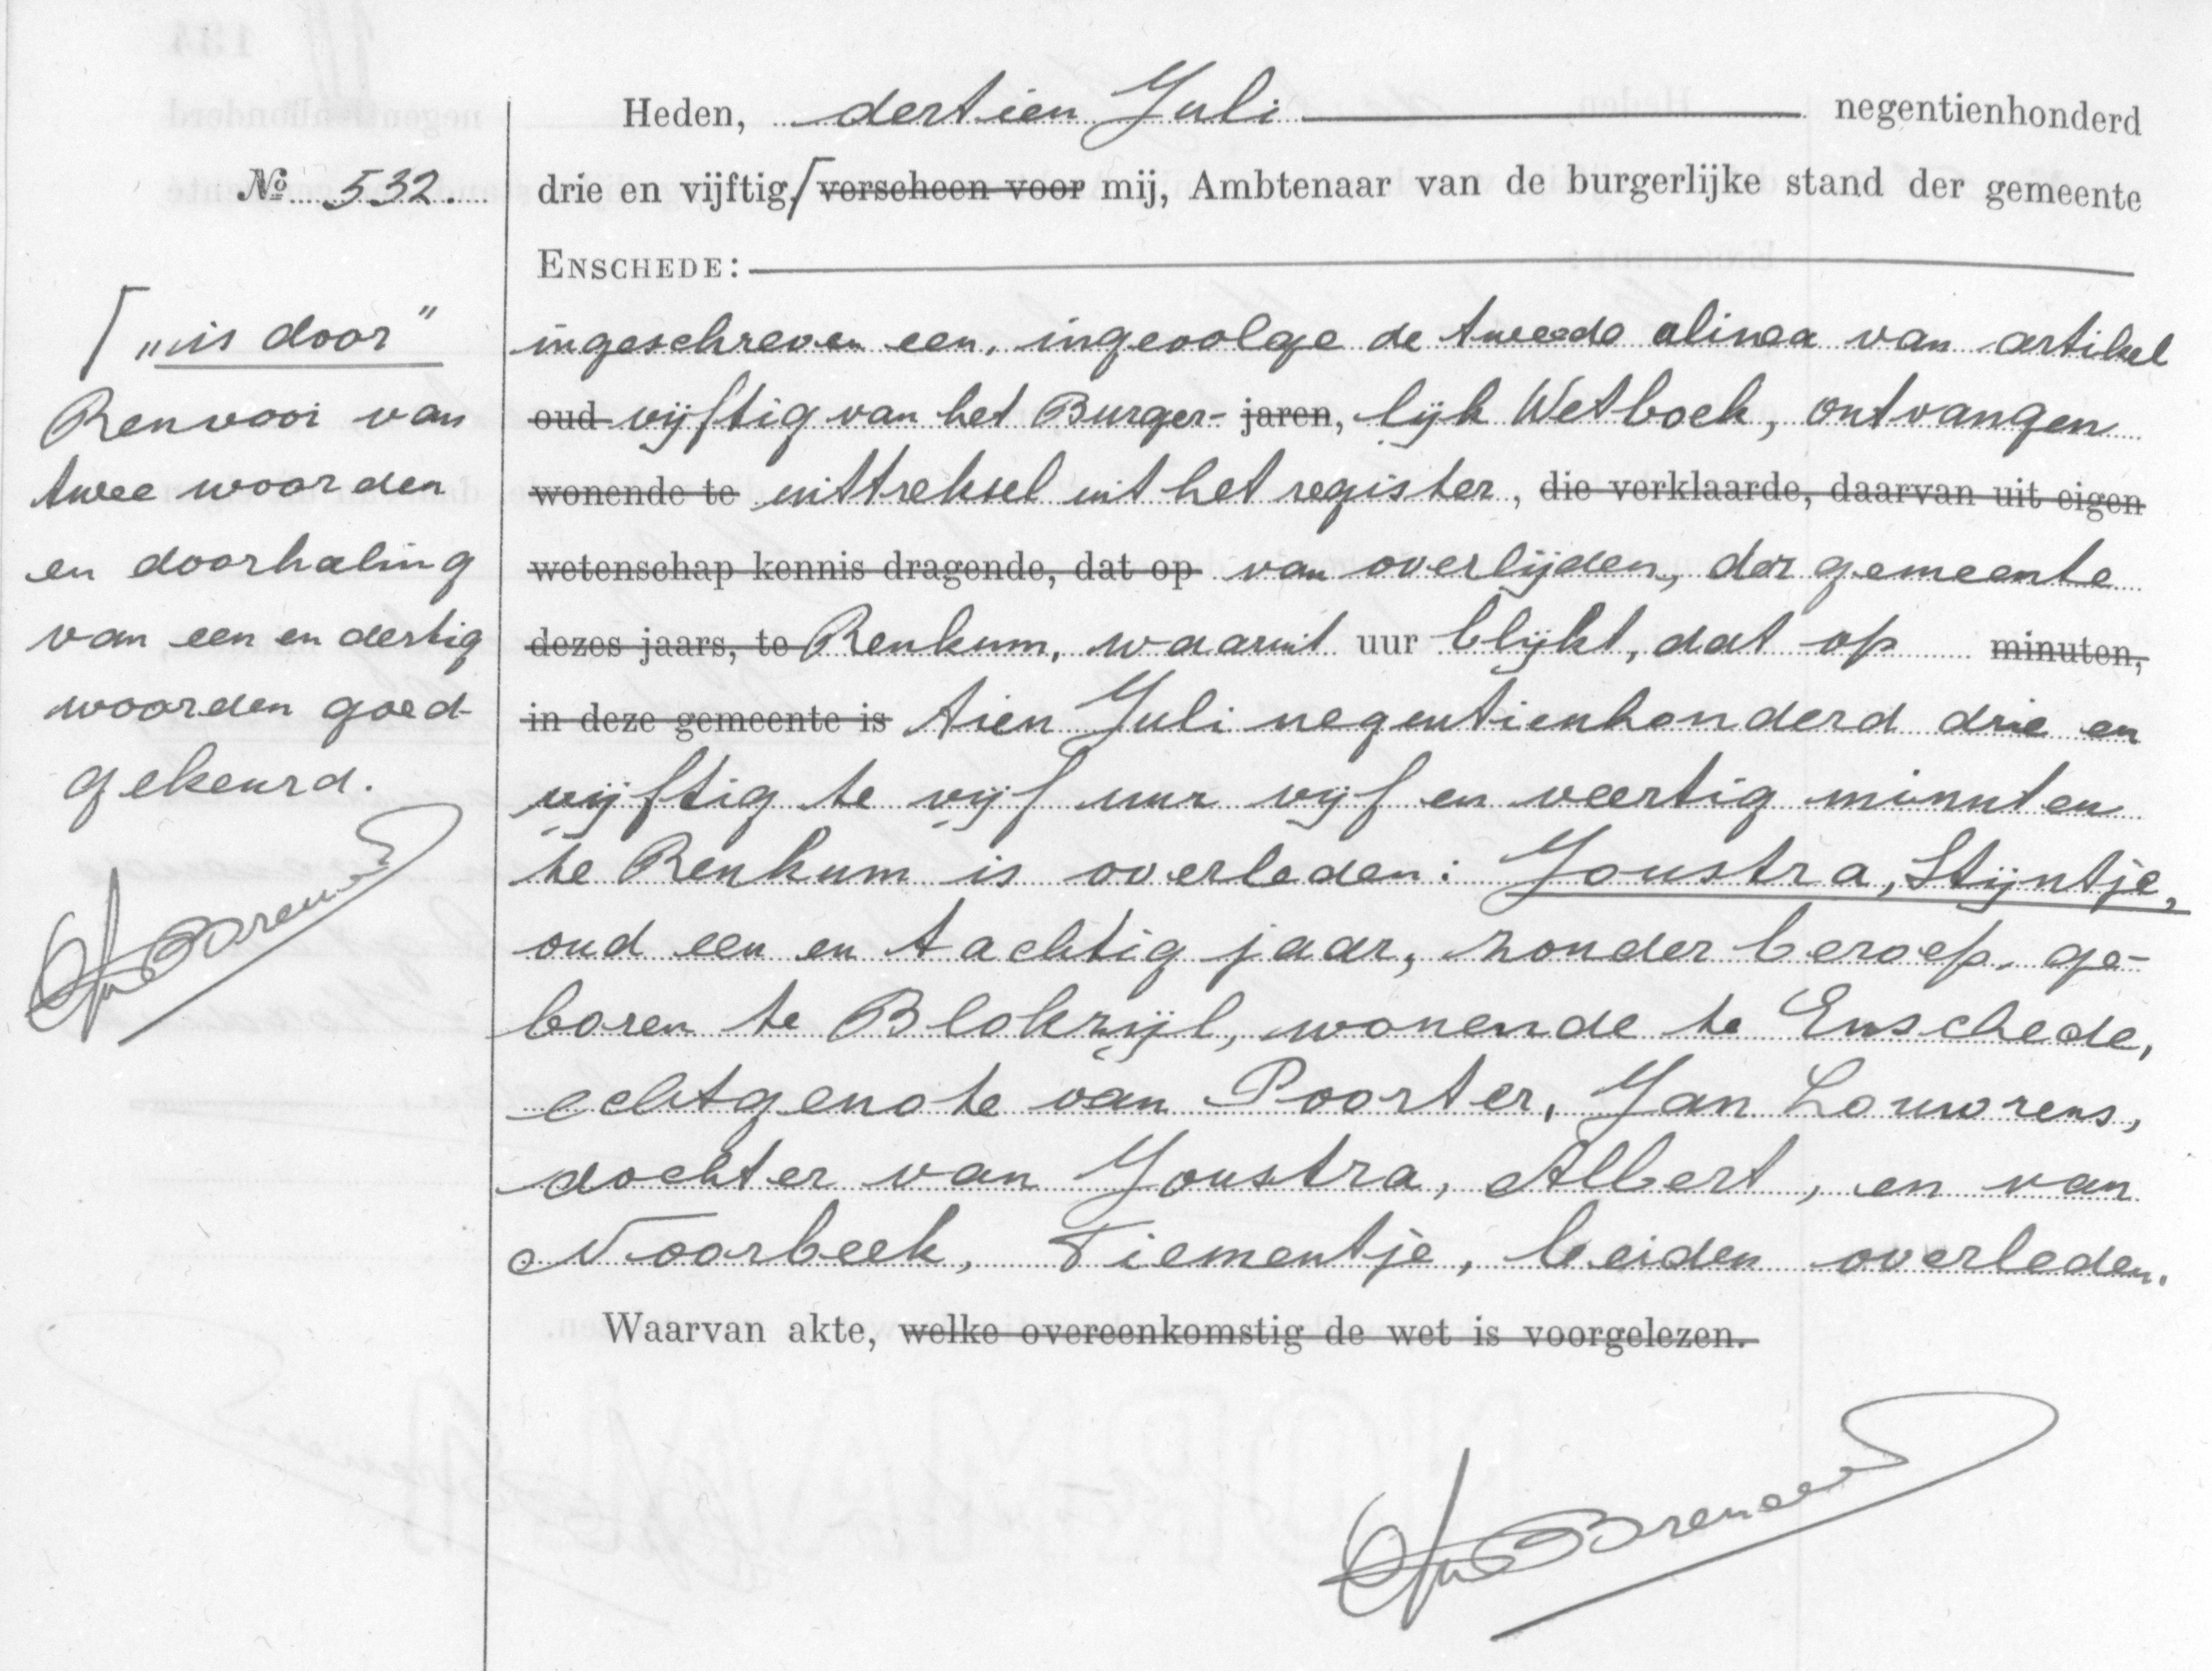 Heden, dertien Juli negentienhonderd
drie en vijftig, ⌈ verscheen voor mij, Ambtenaar van de burgerlijke stand der gemeente
ENSCHEDE:
ingeschreven een, ingevolge de tweede alinea van artikel
oud vijftig van het Burger- jaren, lijk Wetboek, ontvangen
wonende te uittreksel uit het register, die verklaarde, daarvan uit eigen
wetenschap kennis dragende, dat op van overlijden, der gemeente
dezes jaars, te Renkum, waaruit uur blijkt, dat op minuten,
in deze gemeente is tien Juli negentienhonderd drie en
vijftig te vijf uur vijf en veertig minuten
te Renkum is overleden: Joustra, Stijntje,
oud een en tachtig jaar, zonder beroep, ge-
boren te Blokzijl, wonende te Enschede,
echtgenote van Poorter, Jan Louwrens,
dochter van Joustra, Albert, en van
Noorbeek, Tiementje, beiden overleden.
Waarvan akte, welke overeenkomstig de wet is voorgelezen.
No 532.
⌈ „is door"
Renvooi van
twee woorden
en doorhaling
van een en dertig
woorden goed-
gekeurd.